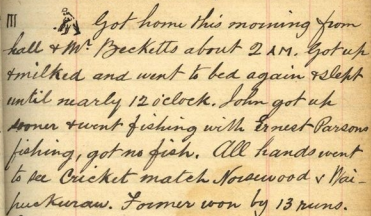 III Got home this morning from
hall & Mr Becketts about 2 AM. Got up
& milked and went to bed again & slept
until nearly 12 o'clock. John got up
sooner & went fishing with Ernest Parsons
fishing, got no fish. All hands went
to see Cricket match Norsewood & Wai-
puckurau. Former won by 13 runs.